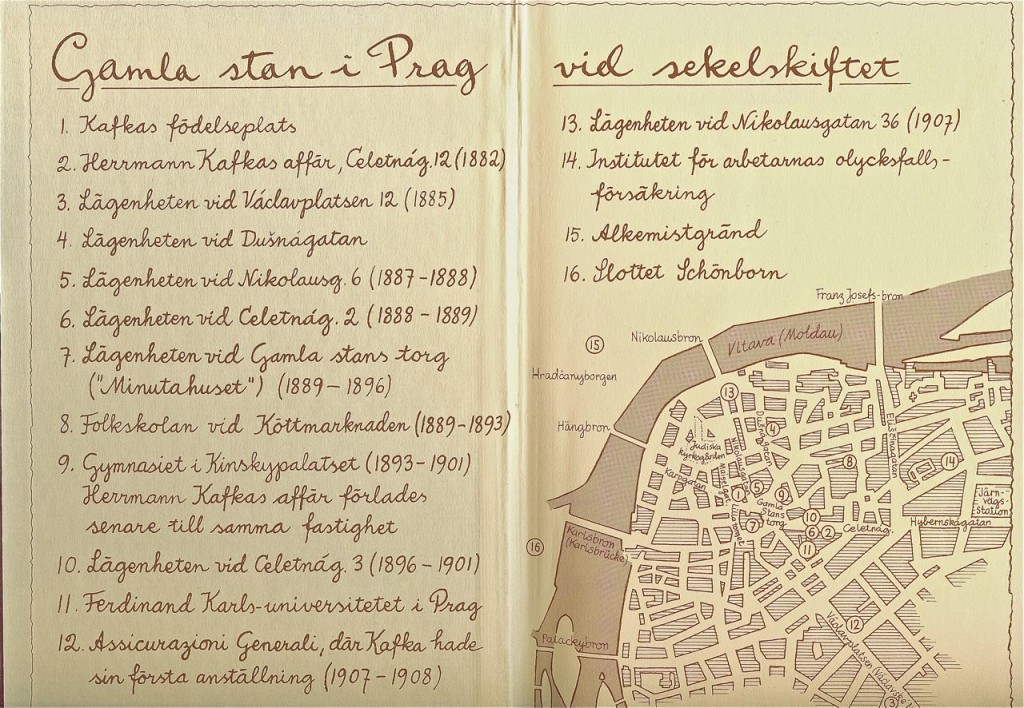 Gamla stan i Prag vid sekelskiftet
1. Kafkas födelseplats
2. Herrmann Kafkas affär, Celetnág. 12 (1882)
3. Lägenheten vid Václavplatsen 12 (1885)
4. Lägenheten vid Dušnágatan
5. Lägenheten vid Nikolausg. 6 (1887-1888)
6. Lägenheten vid Celetnág. 2 (1888-1889)
7. Lägenheten vid Gamla stans torg
("Minutahuset") (1889-1896)
8. Folkskolan vid Köttmarknaden (1889-1893)
9. Gymnasiet i Kinskypalatset (1893-1901)
Herrmann Kafkas affär förlades
senare till samma fastighet
10. Lägenheten vid Celetnág. 3 (1896-1901)
11. Ferdinand Karls-universitetet i Prag
12. Assicurazioni Generali, där Kafka hade
sin första anställning (1907-1908)
13. Lägenheten vid Nikolausgatan 36 (1907)
14. Institutet för arbetarnas olycksfalls-
försäkring
15. Alkemistgränd
16. Slottet Schönborn
Franz Josefs-bron
Nikolausbron
Vltava (Moldau)
15
Hradčanyborgen
13
Hängbron
Dušnágatan
4
Elisönagatan
Judiska
kyrkogården
Nikolausgatan
8
14
Karpgatan
Maiselg.
1
5
9
Järn-
vägs-
station
Gamla
Stans
torg
Lilla torget
7
10
6
2
Celetnág.
Hybernskágatan
11
16
Karlsbron
(Karlsbrücke)
12
Palackybron
Václavplatsen (Václavské N
3